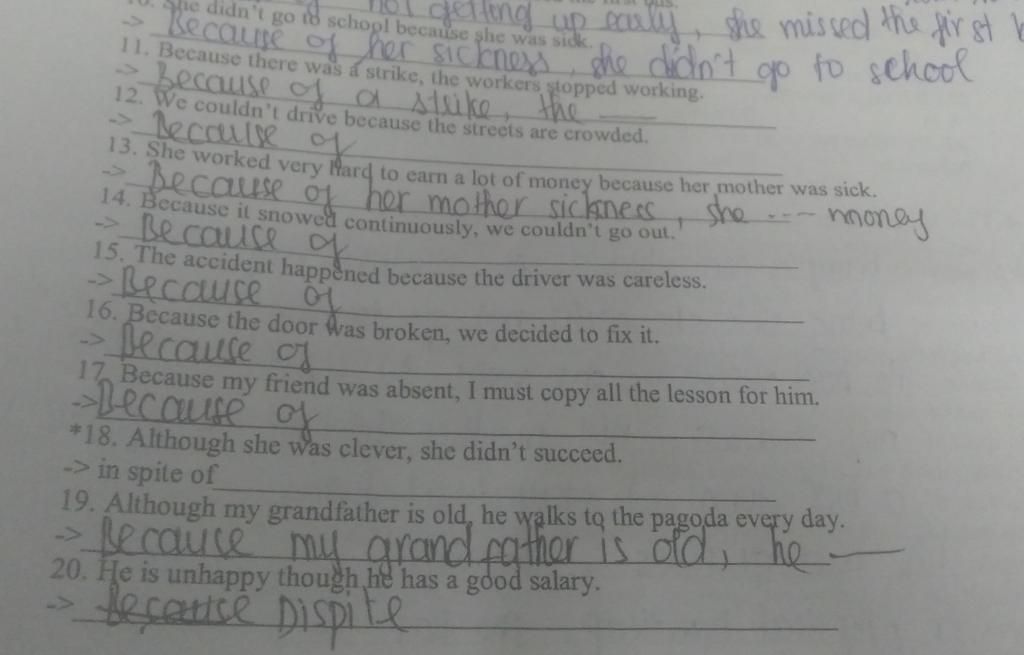 not getting up early, she missed the first
She didn't go to school because she was sick.
-> Because of her sickness, she didn't go to school
11. Because there was a strike, the workers stopped working.
-> Because of a strike, the
12. We couldn't drive because the streets are crowded.
-> Because of
13. She worked very hard to earn a lot of money because her mother was sick.
-> Because of her mother sickness, she --- money
14. Because it snowed continuously, we couldn't go out.
-> Because of
15. The accident happened because the driver was careless.
-> Because of
16. Because the door was broken, we decided to fix it.
-> Because of
17. Because my friend was absent, I must copy all the lesson for him.
-> Because of
*18. Although she was clever, she didn't succeed.
-> in spite of
19. Although my grandfather is old, he walks to the pagoda every day.
-> Because my grand father is old, he
20. He is unhappy though he has a good salary.
-> Because Dispite